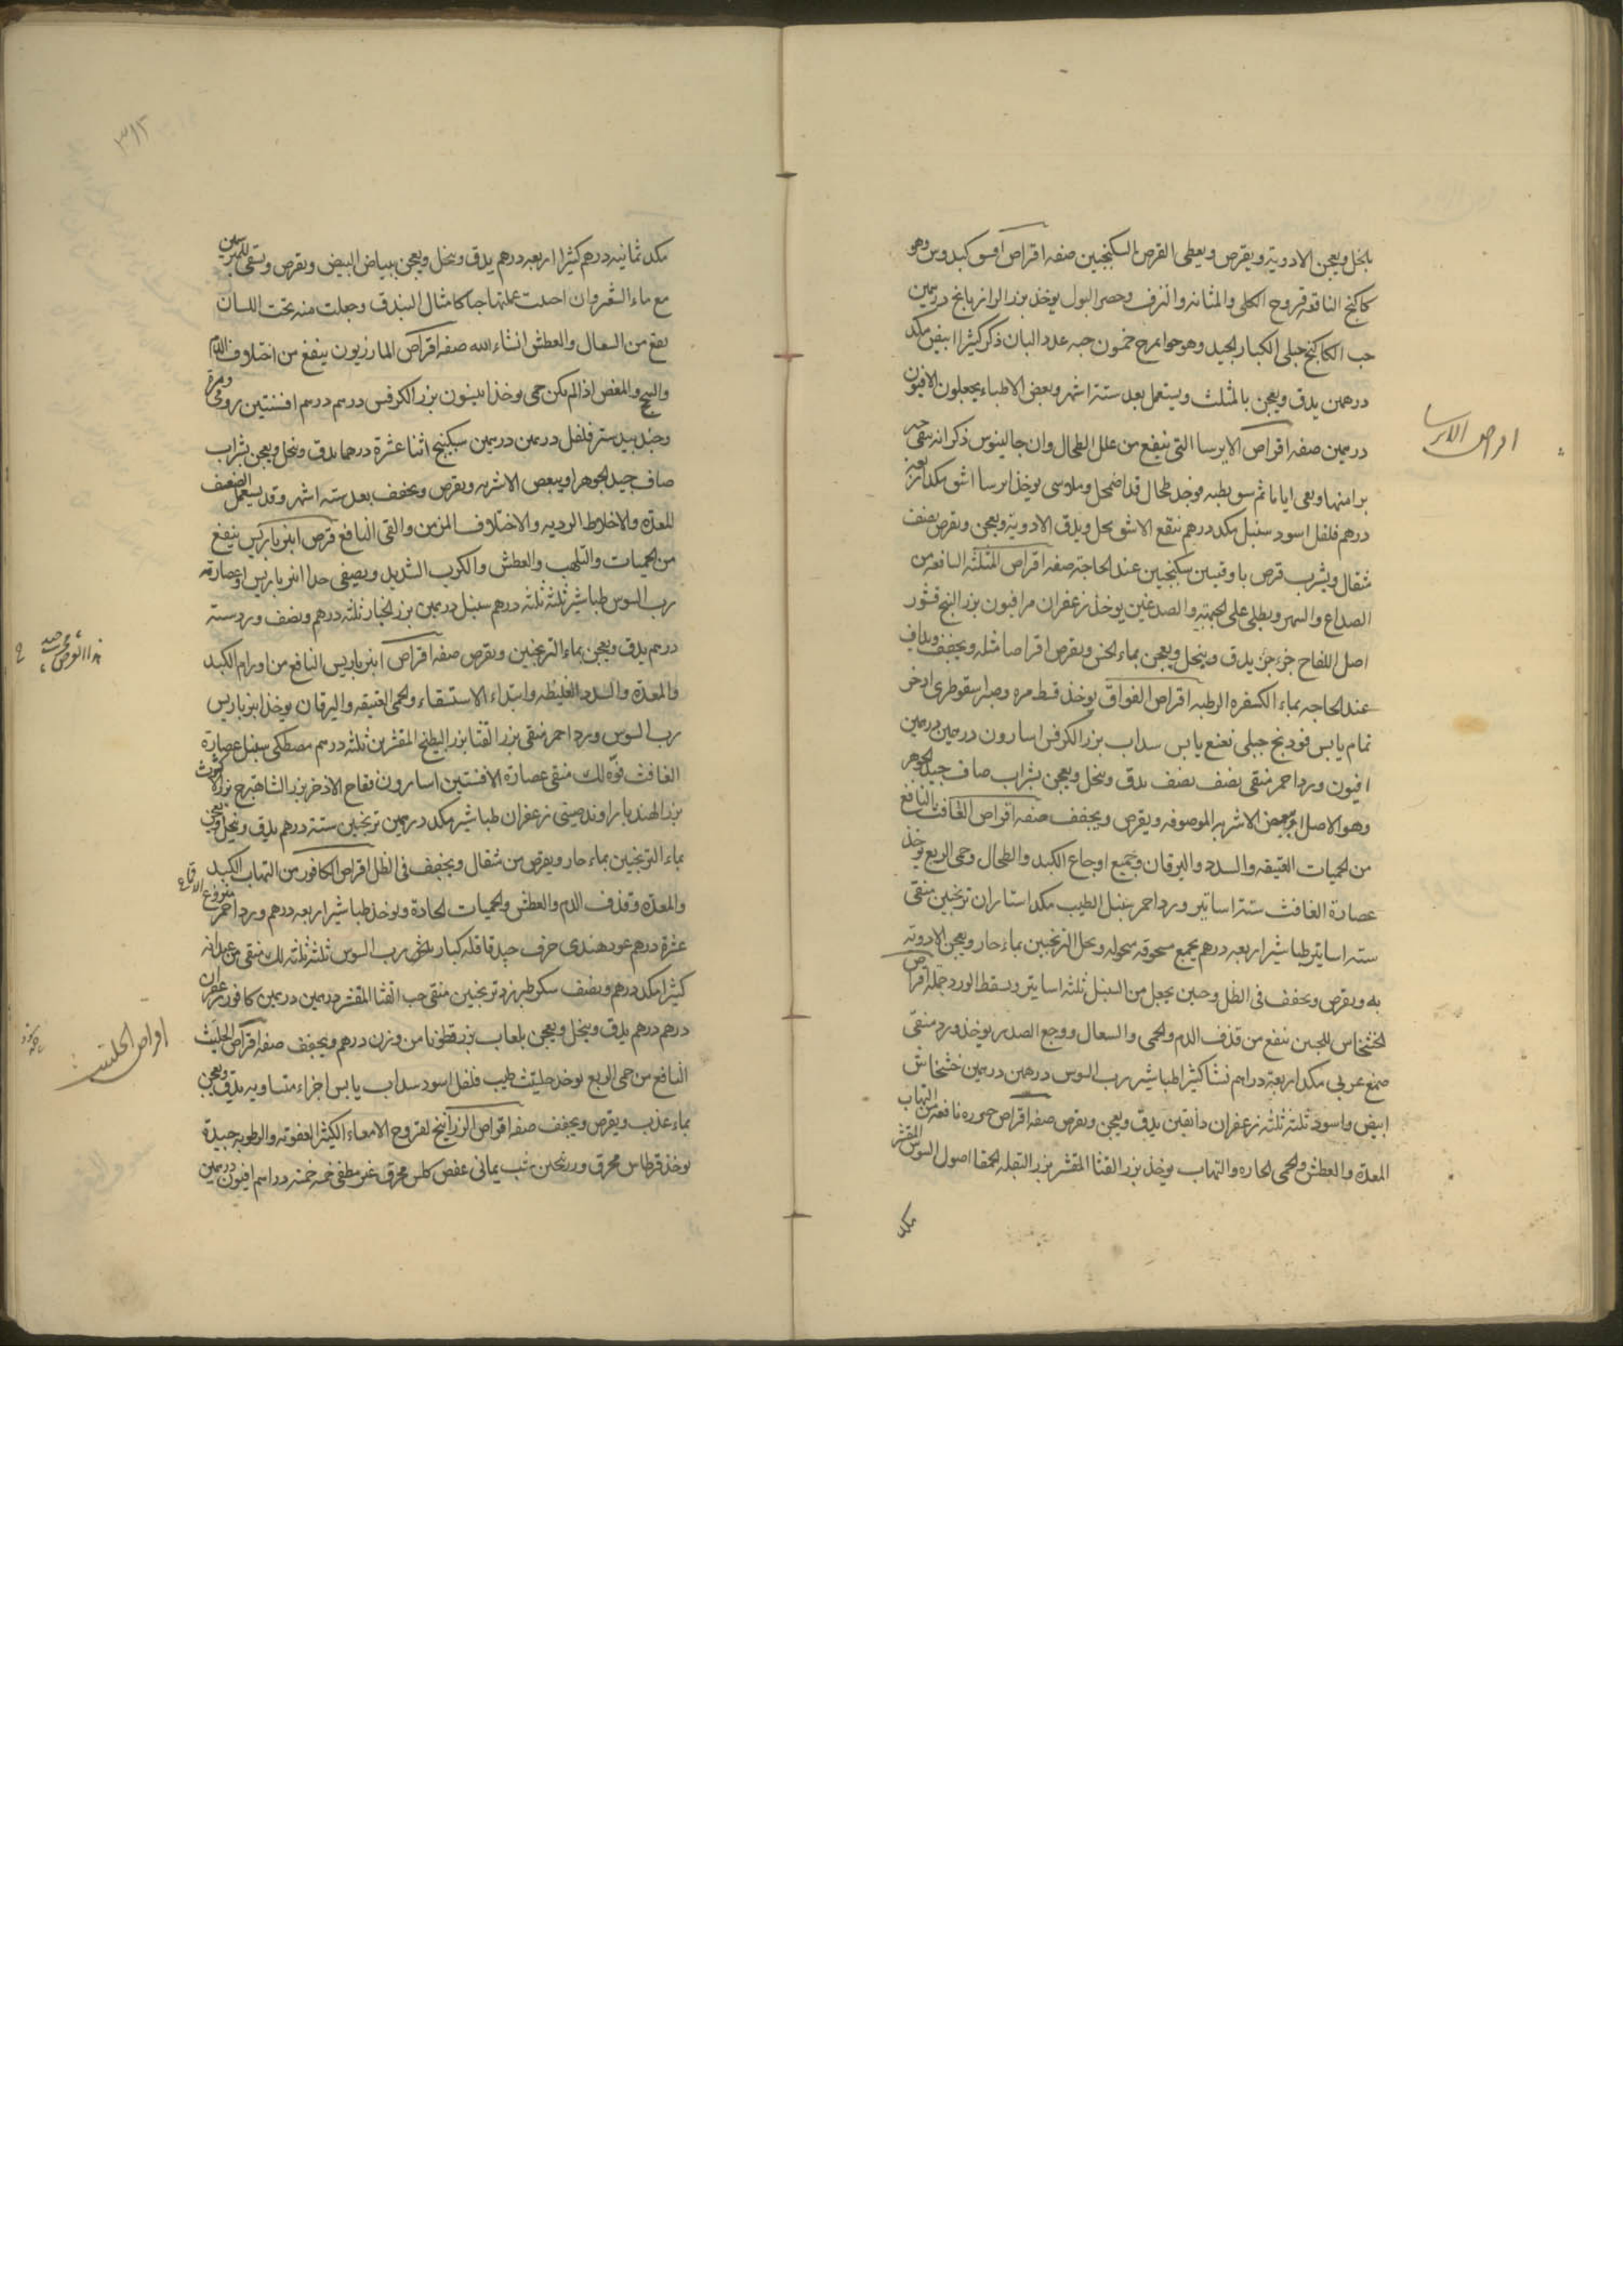 بالخل ويعجن الادوية ويقرص ويعطى القرص بالسكنجبين صفه اقراص وهو
كاكنج النافعه قروح الكلى والمثانه والنزف وحصر البول يوخذ بزر الرازيانج درهمين
حب الكاكنج جبلى الكبار الجيد وهو خمسون حبه عدد اللبان ذكر كثيرا ابيض مكد
درهمين يدق ويعجن بالمثلث ويستعمل بعد ستة اشهر وبعض الاطباء يجعلون الافيون
درهمين صفه اقراص الايرسا التى ينفع من علل الطحال وان جالينوس ذكر انه سقى
اياما ثم بطنه فوجد طحال قد اضمحل يوخذ ايرسا اشق مكد اربعه
درهم فلفل اسود سنبل مكد درهم ينقع الاشق بخل ويدق الادوية ويعجن ويقرص بنصف
مثقال ويشرب قرص باوقيتين سكنجبين عند الحاجة صفه اقراص المثلثه النافعه من
الصداع والسهر ويطلى على الجبهة والصدغين يوخذ زعفران مر افيون بزر البنج قشور
اصل اللفاح جزء جزء يدق وينخل ويعجن بماء الخس ويقرص اقراصا مثله ويجفف ويداف
عند الحاجه بماء الكسفره الرطبه اقراص الفواق يوخذ قسط مره وصبر سقوطرى اذخر
نمام يابس فودنج جبلى نعنع يابس سداب بزر الكرفس اسارون درهمين درهمين
افيون ورد احمر منقى نصف نصف يدق وينخل ويعجن بشراب صاف جيد الجوهر
وهو الاصل او ببعض الاشربه الموصوفه ويقرص ويجفف صفه اقراص الغافث النافع
من الحميات العتيقه والسدد واليرقان وجميع اوجاع الكبد والطحال وحمى الربع يوخذ
عصارة الغافث ستة اساتير ورد احمر سنبل الطيب مكد استاران ترنجبين منقى
ستة اساتير طباشير اربعه درهم يجمع مسحوقه منخوله ويحل الترنجبين بماء حار ويعجن الادويه
به ويقرص ويجفف فى الظل وحين يجعل من السنبل ثلثه اساتير ويسقط الورد جملة اقراص
الخشخاس ينفع من قذف الدم والحمى والسعال ووجع الصدر يوخذ ورد منقى
صمغ عربى مكد اربعة دراهم نشا كثيرا طباشير رب السوس درهمين درهمين خشخاش
ابيض واسود ثلثة ثلثه زعفران دانقين يدق ويعجن ويقرص صفه اقراص نافعه من التهاب
المعدة والعطش والحمى الحاره والتهاب يوخذ بزر القثا المقشر بزر البقله الحمقا اصول السوس المقشر
مكد
اقراص الايرسا
٣١٢
مكد ثمانيه درهم كثيرا اربعه درهم يدق وينخل ويعجن ببياض البيض ويقرص ويسقى
مع ماء الشعير وان احببت عملتها حبا كامثال البندق وجعلت منه تحت اللسان
نفع من السعال والعطش انشاء الله صفه اقراص المازريون ينفع من اختلاف الدم
والسحج والمغص اذا لم يكن حمى يوخذ انيسون بزر الكرفس درهم درهم افسنتين رومى ومر
وجندبيدستر فلفل درهمين درهمين سكبينج اثنا عشرة درهما يدق وينخل ويعجن بشراب
صاف جيد الجوهر او ببعض الاشربه ويقرص ويجفف بعد ستة اشهر وقد يستعمل لضعف
المعدة والاخلاط الرديه والاختلاف المزمن والقى النافع قرص انبرباريس ينفع
من الحميات والتلهب والعطش والكرب الشديد ويصفى انبرباريس او عصارته
رب السوس طباشير ثلثه ثلثه درهم سنبل درهمين بزر الخيار ثلثه درهم ونصف ورد ستة
درهم يدق ويعجن بماء الترنجبين ويقرص صفه اقراص انبرباريس النافع من اورام الكبد
والمعدة والسدد الغليظه وابتداء الاستسقاء والحمى العتيقه واليرقان يوخذ انبرباريس
رب السوس ورد احمر منقى بزر القثا بزر البطيخ المقشرين ثلثه درهم مصطكى سنبل عصارة
الغافث فوه لك منقى عصارة الافسنتين اسارون فقاح الاذخر بزر الشاهترج بزر الكشوث
بزر الهندبا راوند صينى زعفران طباشير مكد درهمين ترنجبين ستة درهم يدق وينخل ويعجن
بماء الترنجبين بماء حار ويقرص من مثقال ويجفف فى الظل اقراص الكافور من التهاب الكبد
والمعدة وقذف الدم والعطش والحميات الحادة ويوخذ طباشير اربعه درهم ورد احمر منزوع الاقماع
عشرة درهم عود هندى جيد قاقله كبار رب السوس ثلثه ثلثه لك منقى من عيدانه
كثيرا مكد درهم ونصف سكر طبرزد ترنجبين منقى حب القثا المقشر درهمين درهمين كافور زعفران
درهم درهم يدق وينخل ويعجن بلعاب بزرقطونا من وزن درهم ويجفف صفه اقراص الحلتيت
النافع من حمى الربع يوخذ حلتيت طيب فلفل اسود سداب يابس اجزاء متساويه يدق ويعجن
بماء عذب ويقرص ويجفف صفه اقراص الزرانيخ لقروح الامعاء الكثيرة العفونه والرطوبه جيدة
يوخذ قرطاس محرق وزرنيخين شب يمانى عفص كلس محرق غير مطفى خمسه خمسه دراهم افيون درهمين
اقراص الحلتيت